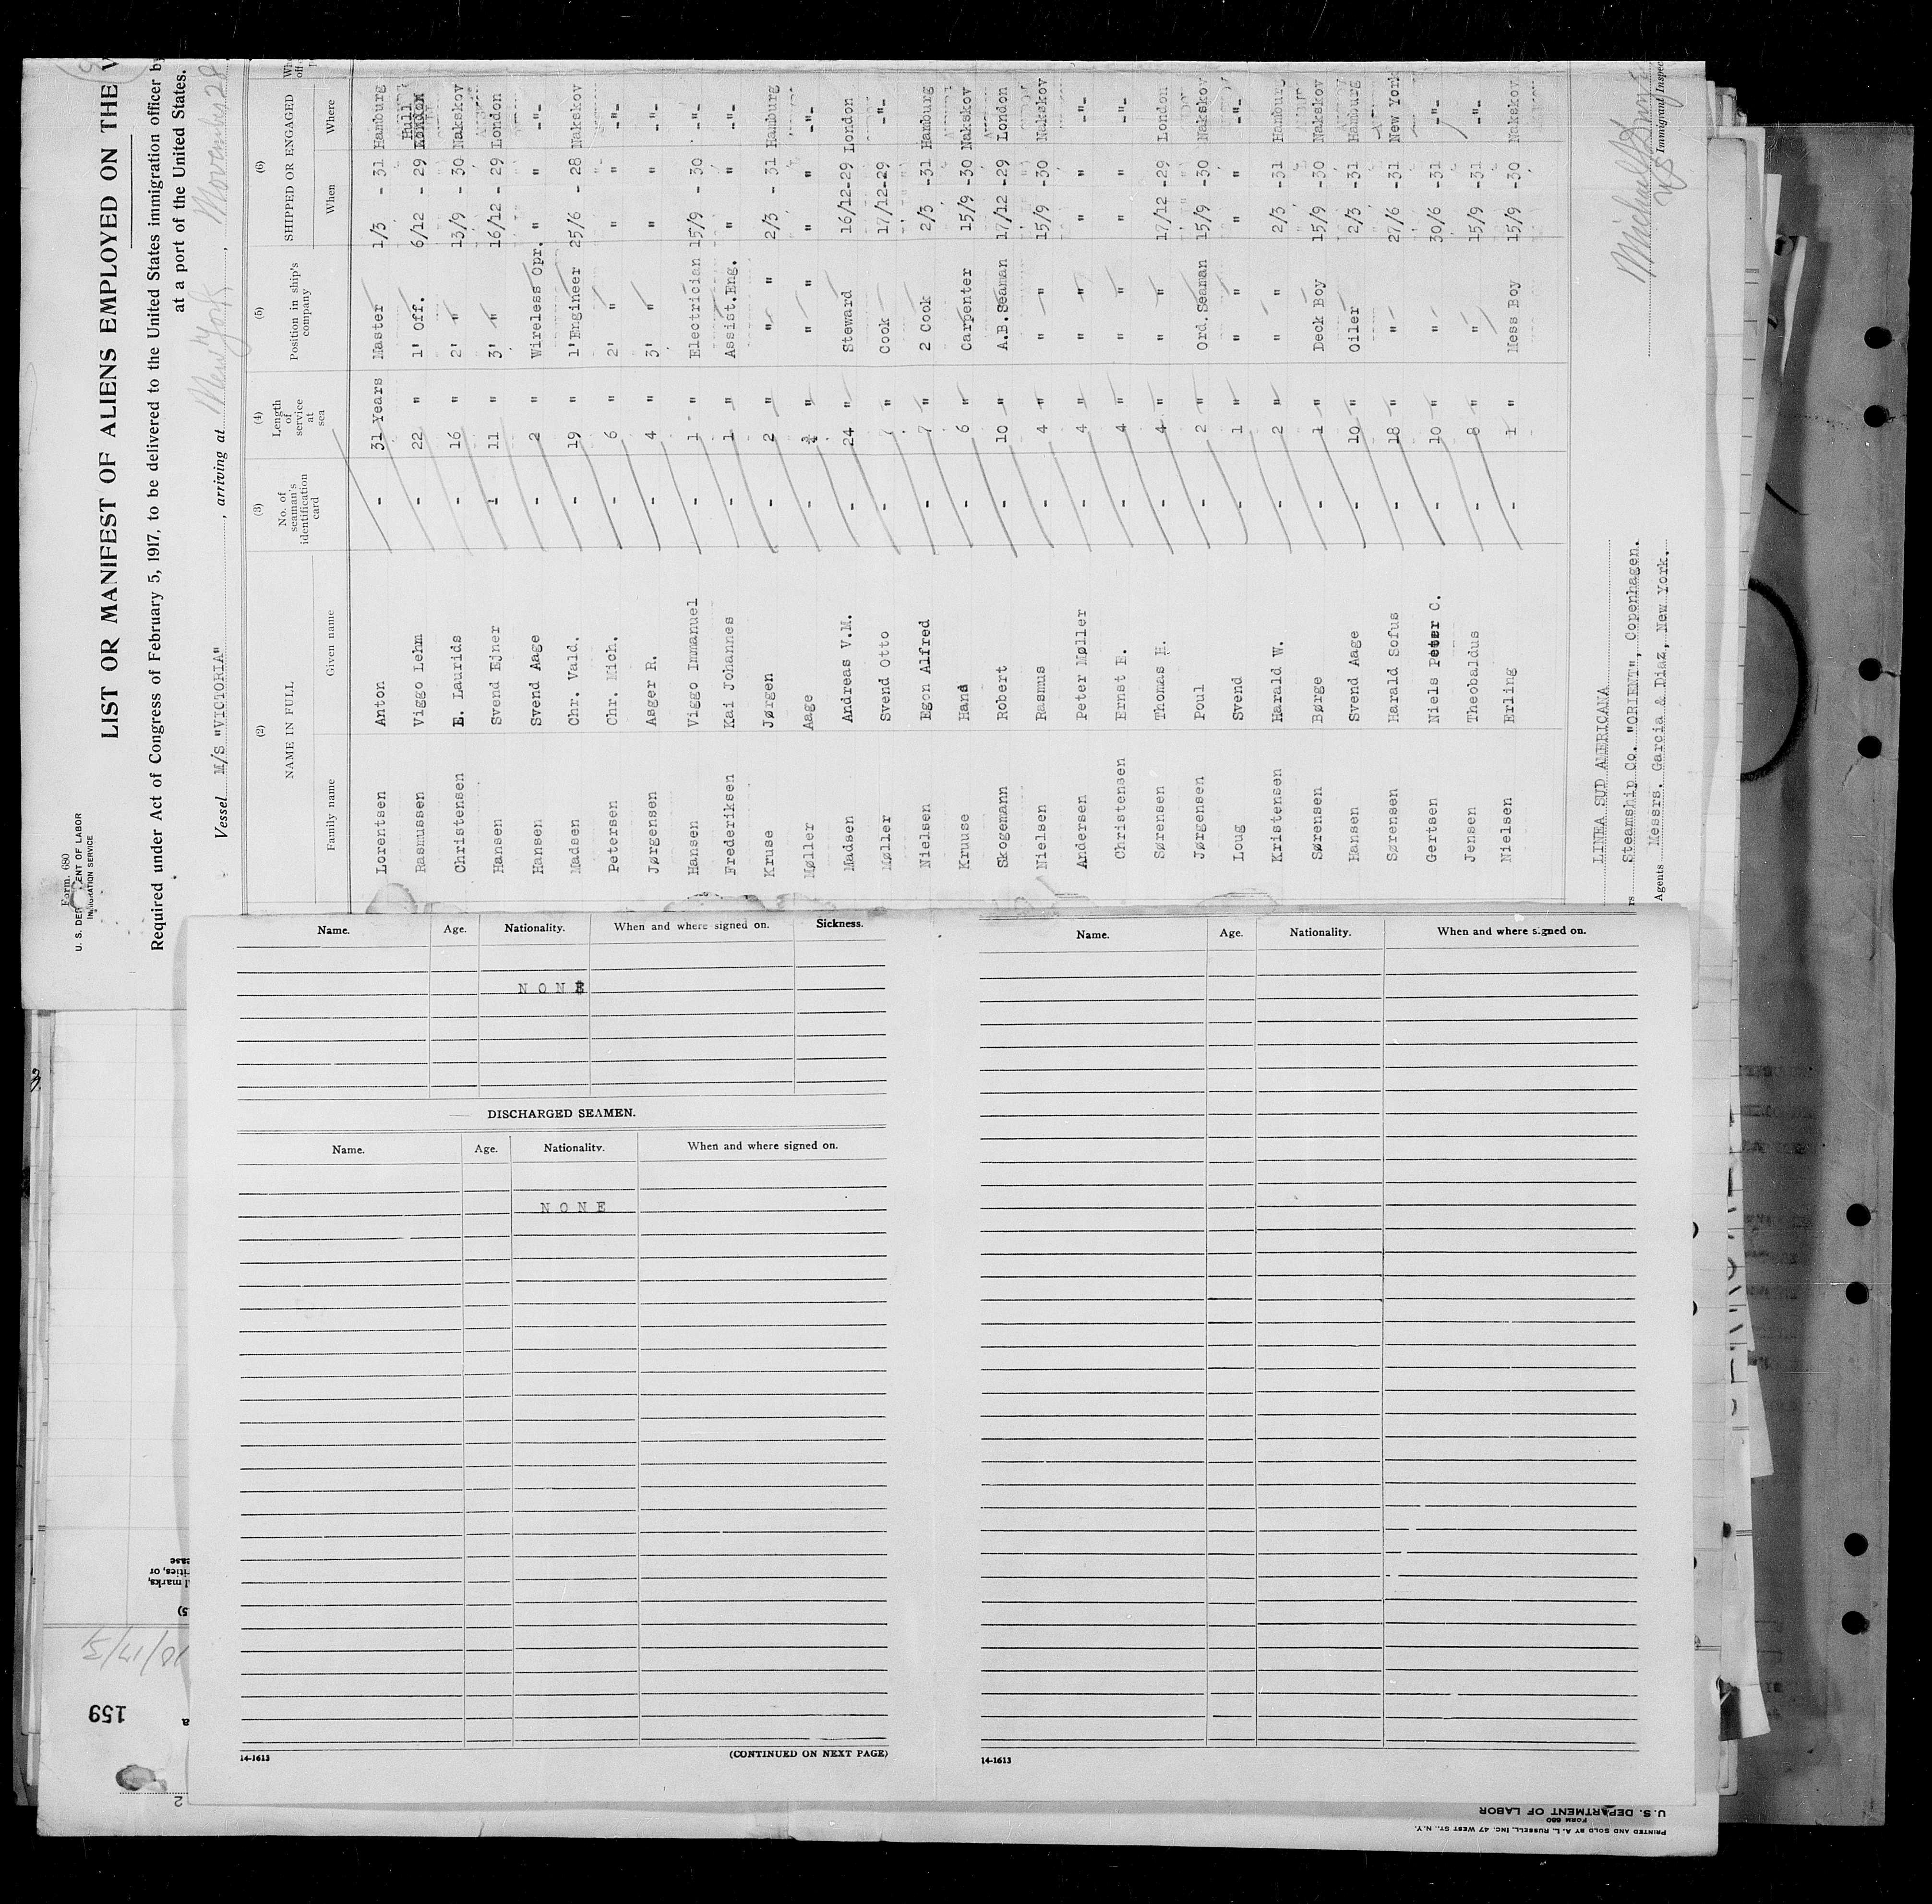 Form 680
U. S. DEPARTMENT OF LABOR
IMMIGRATION SERVICE
LIST OR MANIFEST OF ALIENS EMPLOYED ON THE
Required under Act of Congress of February 5, 1917, to be delivered to the United States immigration officer by
at a port of the United States.
Vessel M/S "VICTORIA" , arriving at New York , November 28
(2) (3) (4) (5) (6)
NAME IN FULL No. of seaman's identification card Length of service at sea Position in ship's company SHIPPED OR ENGAGED
Family name Given name When Where
Lorentsen Anton - 31 Years Master 1/3 - 31 Hamburg
Rasmussen Viggo Lehm - 22 " 1' Off. 6/12 - 29 London Hull
Christensen E. Laurids - 16 " 2' " 13/9 - 30 Nakskov
Hansen Svend Ejner - 11 " 3' " 16/12 - 29 London
Hansen Svend Aage - 2 " Wireless Opr. " " -"-
Madsen Chr. Vald. - 19 " 1'Engineer 25/6 - 28 Nakskov
Petersen Chr. Mich. - 6 " 2' " " -"-
Jørgensen Asger R. - 4 " 3' " " -"-
Hansen Viggo Immanuel - 1 " Electrician 15/9 - 30 -"-
Frederiksen Kai Johannes - 1 " Assist.Eng. " " -"-
Kruse Jørgen - 2 " " " 2/3 - 31 Hamburg
Møller Aage - " " " " " -"-
Madsen Andreas V.M. - 24 " Steward 16/12-29 London
Møller Svend Otto - 7 " Cook 17/12-29 -"-
Nielsen Egon Alfred - 7 " 2 Cook 2/3 -31 Hamburg
Kruuse Hans - 6 " Carpenter 15/9 -30 Nakskov
Skogemann Robert - 10 " A.B.Seaman 17/12 -29 London
Nielsen Rasmus - 4 " " " 15/9 -30 Nakskov
Andersen Peter Møller - 4 " " " " " -"-
Christensen Ernst E. - 4 " " " " -"-
Sørensen Thomas H. - 4 " " " 17/12 -29 London
Jørgensen Poul - 2 " Ord.Seaman 15/9 -30 Nakskov
Loug Svend - 1 " " " " " -"-
Kristensen Harald W. - 2 " " " 2/3 -31 Hamburg
Sørensen Børge - 1 " Deck Boy 15/9 -30 Nakskov
Hansen Svend Aage - 10 " Oiler 2/3 -31 Hamburg
Sørensen Harald Sofus - 18 " " 27/6 -31 New York
Gertsen Niels Peter C. - 10 " " 30/6 -31 -"-
Jensen Theobaldus - 8 " " 15/9 -31 -"-
Nielsen Erling - 1 " Mess Boy 15/9 -30 Nakskov
LINEA SUD AMERICANA
Steamship Co. "ORIENT", Copenhagen.
Agents Messrs. Garcia & Diaz, New York.
Immigrant Inspec
Name. Age. Nationality. When and where signed on. Sickness.
NONE
DISCHARGED SEAMEN.
Name. Age. Nationality. When and where signed on.
NONE
14-1613 (CONTINUED ON NEXT PAGE)
Name. Age. Nationality. When and where signed on.
14-1613
159
U. S. DEPARTMENT OF LABOR
FORM 680
PRINTED AND SOLD BY A. L. RUSSELL, INC. 47 WEST ST., N.Y.